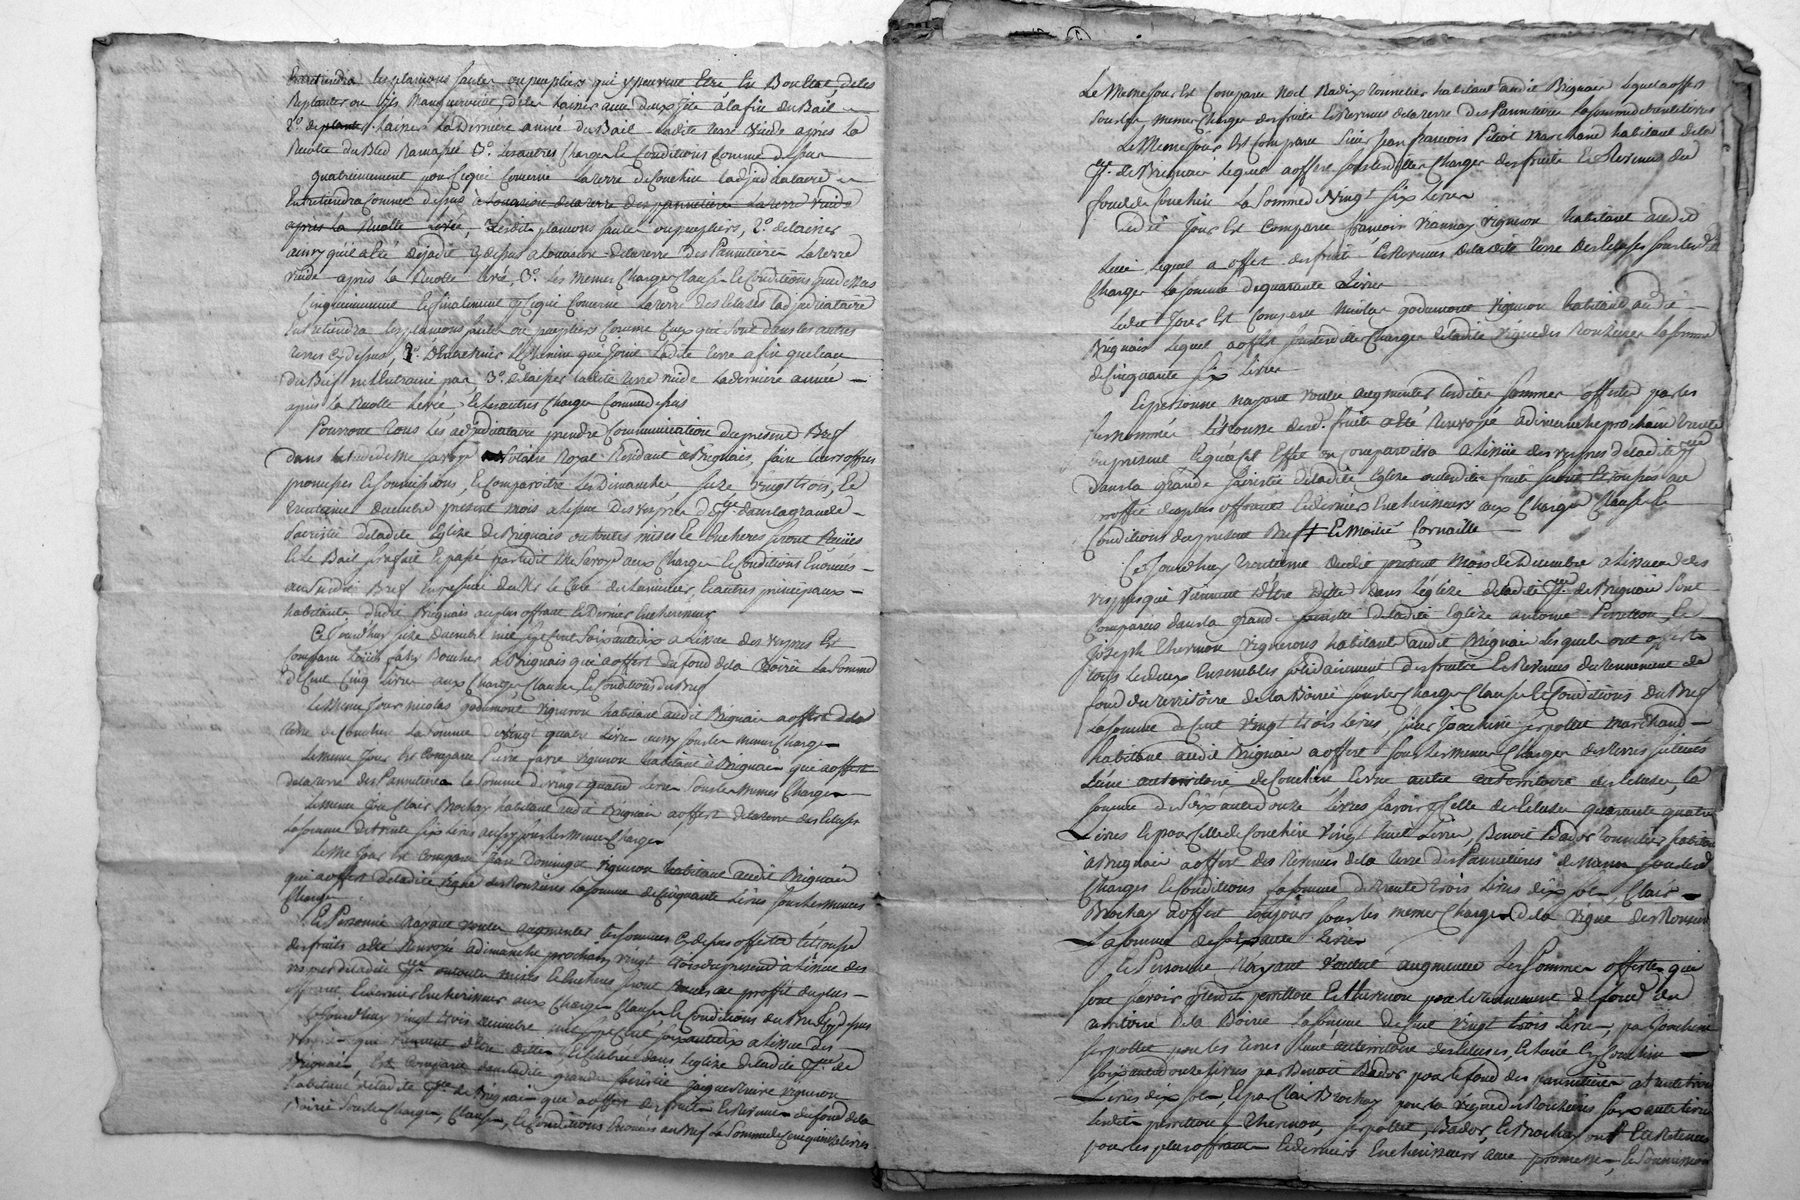 Entretiendra les plançons saules ou peupliers qui y peuvent être en Bon état, de les
Replanter ou s'ils manquervient, de les laisser avec deux jets a la fin du Bail
2º. de laisser La Derniere année du Bail Ladite terre Vuide après La
Recolte du Bled Ramassée 3º. les autres Charges & Conditions comme dessus
quatriemement pour ce qui Concerne La terre de Couchire Ladjudicataire
Entretiendra comme dessus a Loccasion de la terre des pannetieres La terre vuide
après La Recolte Levée, lesdits plançons saules ou peupliers, 2º. de laisser
ainsy qu'il a été déja dit cy dessus a Loccasion de la terre des Pannetieres La terre
vuide après La Recolte Levé, 3º. les memes Charges Clauses & Conditions que dessus
Cinquiemement & finalement & ce qui Concerne La terre des Ecluses Ladjudicataire
Entretiendra les plançons saules ou peupliers comme ceux qui sont dans les autres
terres cy dessus, 2º. D'Entretenir Le chemin qui joint Ladite terre afin que l'eau
du Bief ne L'entraine pas, 3º. de laisser Ladite terre vuide La derniere année
après La Recolte Levée, & les autres Charges comme dessus
Pourront tous Les adjudicataires prendre Communication du present Bref
dans Letude de Me Savoye Notaire Royal Residant à Brignais, faire leurs offres
promesses & soumissions, & comparoitre Les Dimanches seize vingt trois, &
trentieme decembre present mois a lissue des vespres dans la grande
sacristie de ladite Eglize de Brignais ou toutes mises & Encheres seront Reçües
& Le Bail sera fait & passé par ledit Me Savoye aux Charges & Conditions Enoncées
au susdit Bref En presence de Mr Le Curé des Luminiers, & autres principaux
habitants dudit Brignais au plus offrant & Dernier Encherisseur
Ce Jourd'huy seize decembre mil sept cent soixante dix a Lissue des vespres Est
Comparu Boucher à Brignais qui a offert du fond de la Boirie La somme
de Cent Cinq Livres aux Charges Clauses, & Conditions du Bref
Le Meme Jour nicolas godemont vigneron habitant audit Brignais a offert de la
terre de Couchire La somme de vingt quatre Livres aussy sous les memes Charges
Le meme Jour Est Comparu Pierre favre vigneron habitant à Brignais qui a offert
de la terre des Pannetieres la somme de vingt quatre Livres sous les memes Charges
Le meme Jour Clair Brochay habitant audit Brignais a offert de la terre des Ecluses
La somme de trente six Livres aussy sous les memes Charges
Le Me Jour Est Comparu Jean Domingot vigneron habitant audit Brignais
qui a offert de ladite vigne des Ronzieres La somme de Cinquante Livres sous les memes
Charges
Et Personne n'ayant voulu augmenter les sommes cy dessus offertes L'etrousse
des fruits a été Renvoyée a dimanche prochain vingt trois du present a Lissue des
vespres de ladite Eglise ou toutes mises & Encheres seront Reçues au proffit du plus
offrant, & dernier Encherisseur aux Charges Clauses & Conditions du Bref cy dessus
Ce Jourd'huy vingt trois decembre mil sept cent soixante dix a Lissue des
vespres qui viennent d'être dittes & Celebrées dans L'eglize de ladite de
Brignais, Est Comparu dans ladite grande sacristie vigneron
habitant de ladite de Brignais qui a offert des fruits & Revenus du fond de la
Boirie sous les Charges, Clauses, & Conditions Enoncées au Bref La somme de Cent quinze Livres
Le Meme Jour Est Comparu Noel Radix Tonnelier habitant audit Brignais Lequel a offert
sous les memes Charges des fruits & Revenus de la terre des Pannetieres La somme de trente Livres
Le Meme Jour Est Comparu Sieur Jean francois Pitiot marchand habitant de la
de Brignais Lequel a offert sous les dittes Charges des fruits & Revenus du
fond de Couchire La somme de vingt six Livres
Ledit Jour Est Comparu francois vigneron habitant audit
Lieu Lequel a offert des fruits & Revenus de la dite terre des Ecluses sous lesdites
Charges La somme de quarante Livres
Ledit Jour Est Comparu Nicolas godemont vigneron habitant audit
Brignais Lequel a offert sous lesdittes Charges de ladite vigne des Ronzieres La somme
de Cinquante six Livres
Et personne n'ayant voulu augmenter lesdites sommes offertes par les
susnommés L'etrousse desd. fruits a été Renvoyée a dimanche prochain trente
du present a Lissüe des vespres de ladite
Dans la grande sacristie de ladite Eglize ou lesdits fruits seront Etroussés au
proffit des plus offrants & derniers Encherisseurs aux Charges Clauses &
Conditions du present Bref
Ce Jourd'huy trentieme dudit present mois de Decembre a Lissue des
vespres qui viennent d'être dittes dans L'eglize de ladite de Brignais sont
Comparus dans la grande sacristie de ladite Eglize antoine Peretton, &
Joseph Thermon vignerons habitants audit Brignais Lesquels ont offerts
tous Les deux Ensembles solidairement des fruits & Revenus du tennement de
fond du territoire de la Boirie sous les Charges Clauses & Conditions du Bref
La somme de Cent vingt trois Livres, sieur Joachim serpollet marchand
habitant audit Brignais a offert sous les memes Charges des terres situées
L'une au territoire de Couchire & L'autre au territoire des Ecluses, la
somme de soixante douze Livres savoir celle des Ecluses quarante quatre
Livres & pour celle de Couchire vingt huit Livres, Benoit Bador tonnelier habitant
à Brignais a offert des Revenus de la terre des Pannetieres de meme sous lesd
Charges & Conditions La somme de trente trois Livres dix sols, Clair
Brochay a offert toujours sous les memes Charges de la vigne des Ronzieres
La somme de soixante Livres
Et Personne N'ayant voulut augmenter Les sommes offertes qui
sont savoir lesdits peretton & thermon pour le tennement de fond du
territoire de la Boirie La somme de Cent vingt trois Livres, par Joachim
serpollet pour les terres L'une au territoire des Ecluses, & L'autre En Couchire
soixante douze Livres par Benoit Bador pour le fond des pannetieres a trente trois
Livres dix sols, & par Clair Brochay pour la vigne des Ronzieres soixante Livres
Lesdits peretton, thermon, serpollet, Bador, & Brochay ont Eté Retenus
pour les plus offrants & derniers Encherisseurs avec promesse, & soumission